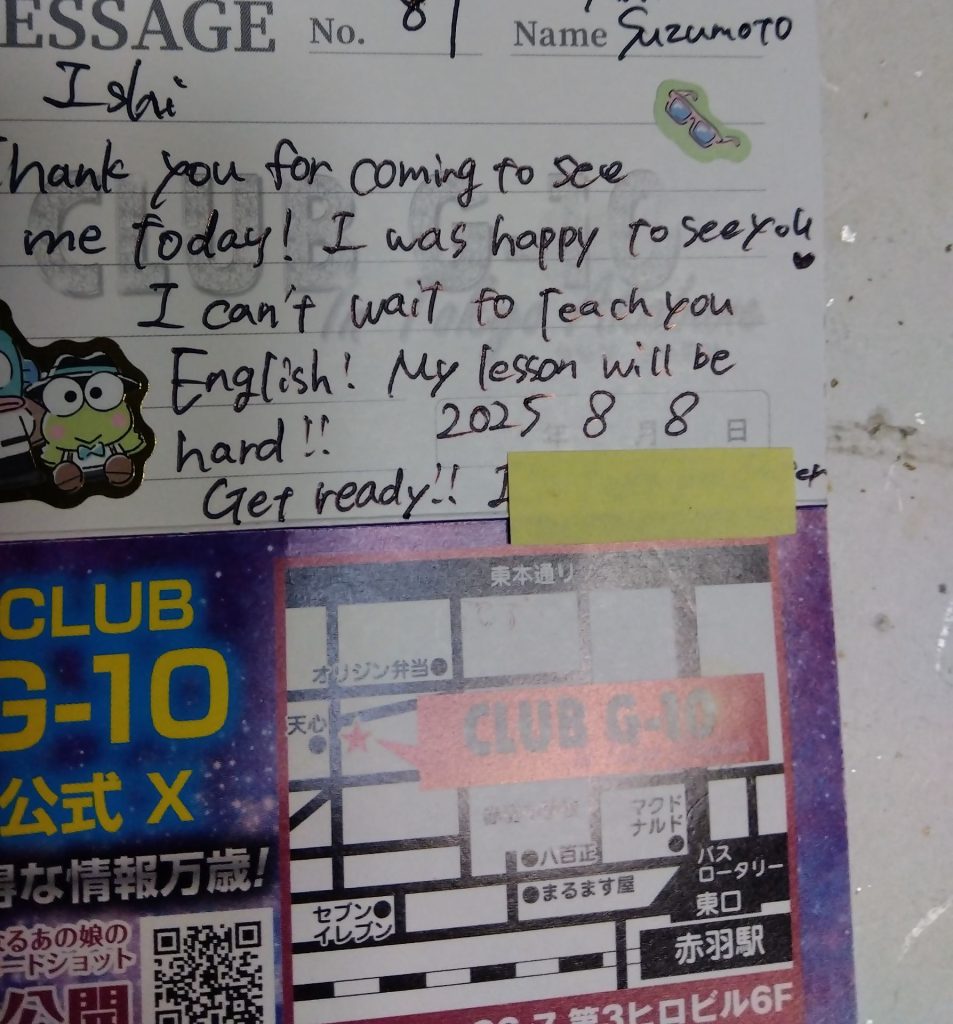 ESSAGE No. 8 Name Suzumoto
Ishi
Thank you for coming to see
me today! I was happy to see you
I can't wait to Teach you
English! My lesson will be
hard!! 2025 年 8 月 8 日
Get ready!! I
CLUB
G-10
公式 X
得な情報万歳!
なるあの娘の
ートショット
公開
東本通り
オリジン弁当
天心
CLUB G-10
マクド
ナルド
八百正
まるます屋
バス
ロータリー
東口
セブン
イレブン
赤羽駅
第3ヒロビル6F